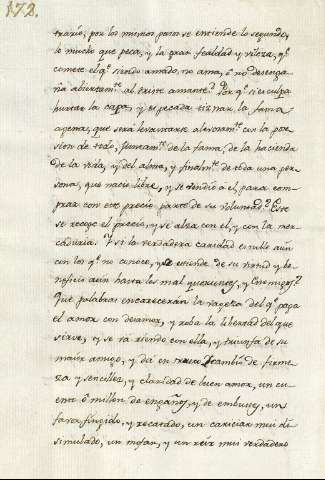 172.
trario, por los mismos pasos se entiende lo segundo,
lo mucho que peca, y la gran fealdad y vileza, q.e
comete el q.e siendo amado, no ama, ô no desenga-
ña abiertam.te al triste amante? Por q.e si es culpa
hurtar la capa, y es pecado tiznar la fama
agena, que será levantarse alevosam.te con la po-
sesion de todo, juntam.te de la fama, de la hacienda
de la vida, y del alma, y finalm.te de toda una per-
sona, que nacio libre, y se rindio á el, para com-
prar con este precio parte de su voluntad? Este
se recoge el precio, y se alza con el, y con la mer-
caduria. Y si la verdadera caridad es noble aún
con los q.e no conoce, y se estiende de su virtud y be-
neficio aún hasta los mal querientes, y enemigos?
Que palabras encarecerán la vageza del q.e paga
el amor con desamor, y roba la libertad del que
sirve, y se va riendo con ella, y triunfa de su
maior amigo, y dá en cambio de firme-
za y sencillez, y claridad de buen amor, un cu-
ento ô millon de engaños, y de embustes, un
favor fingido, y recatado, un cariciar mui di-
simulado, un mofar, y un reir mui verdadero